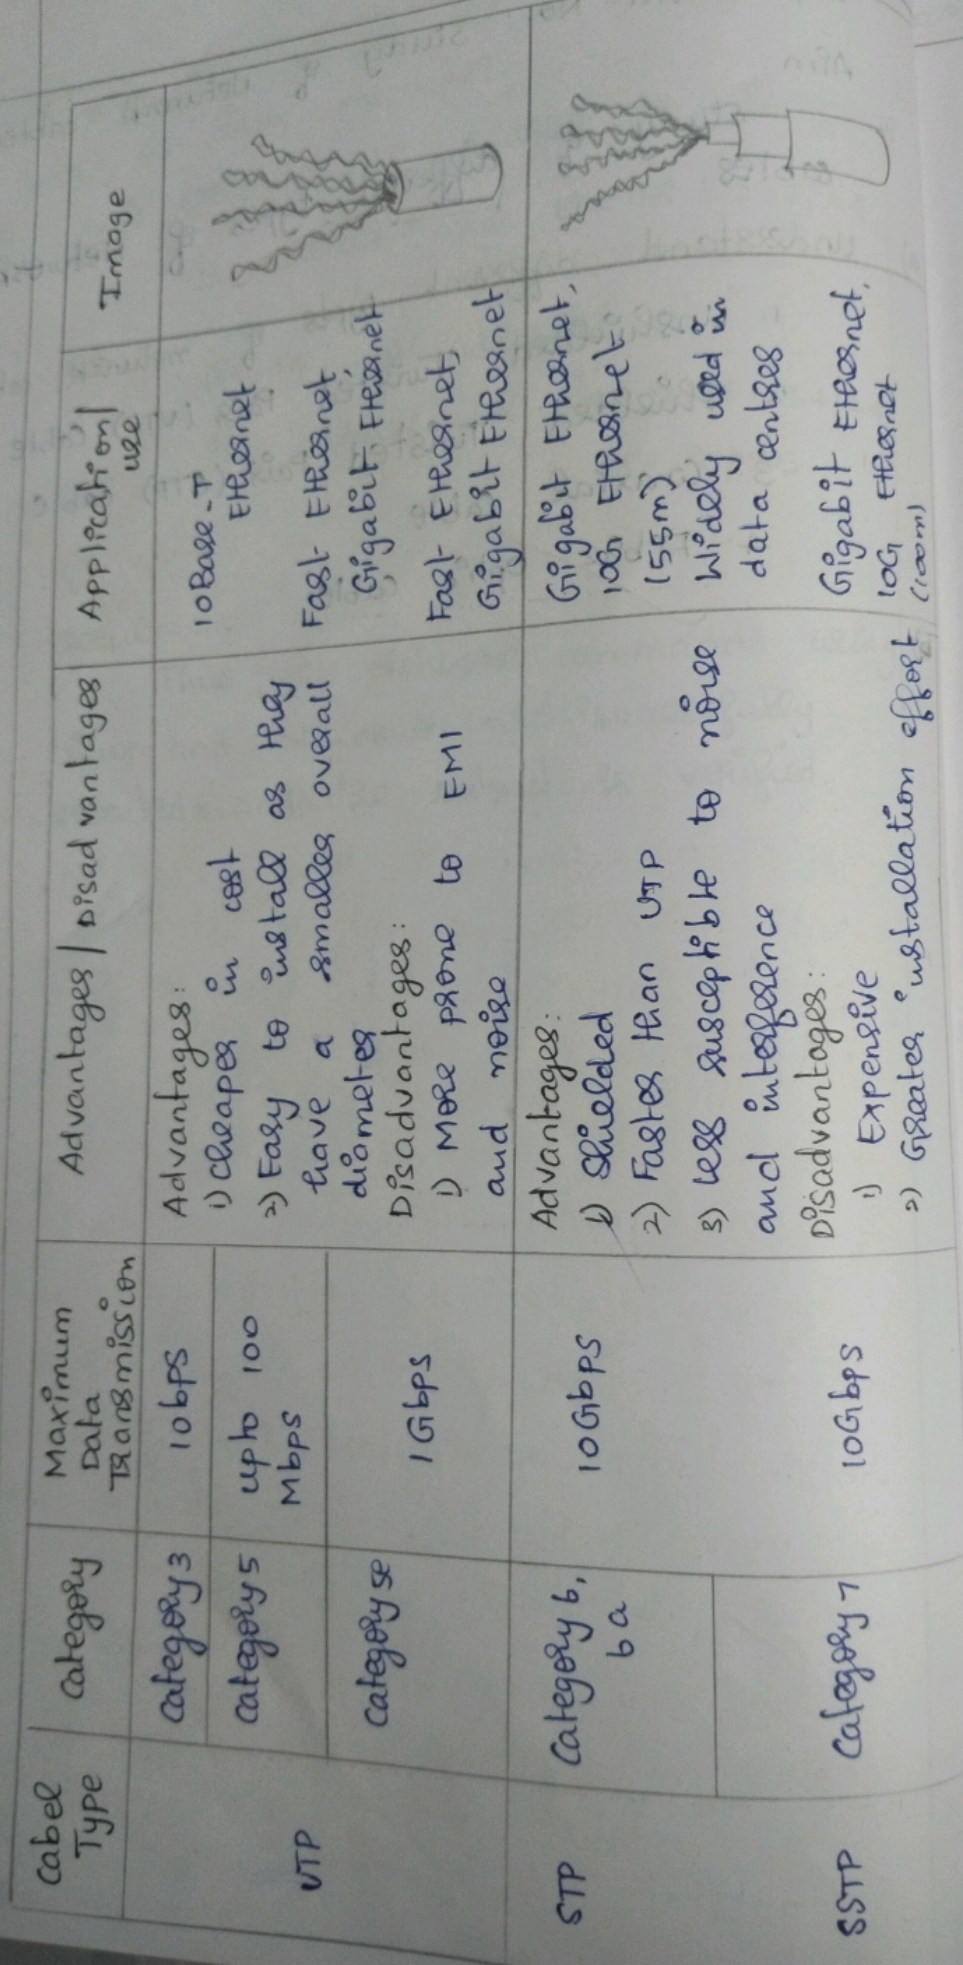 Cabel Type
Category
Maximum Data Transmission
Advantages | Disadvantages
Application | use
Image
UTP
Category 3
10bps
Category 5
upto 100
Mbps
Category 5e
1Gbps
Advantages:
1) cheaper in cost
2) Easy to install as they
have a smaller overall
diameter
Disadvantages:
1) More prone to EMI
and noise
10Base-T
Ethernet
Fast Ethernet,
Gigabit Ethernet
Fast Ethernet,
Gigabit Ethernet
STP
Category 6,
6a
10Gbps
Advantages:
1) Shielded
2) Faster than UTP
3) Less susceptible to noise
and interference
Disadvantages:
1) Expensive
2) Greater installation effort
Gigabit Ethernet,
10G Ethernet
(55m)
Widely used in
data centres
SSTP
Category 7
10Gbps
Gigabit Ethernet,
10G Ethernet
(100m)